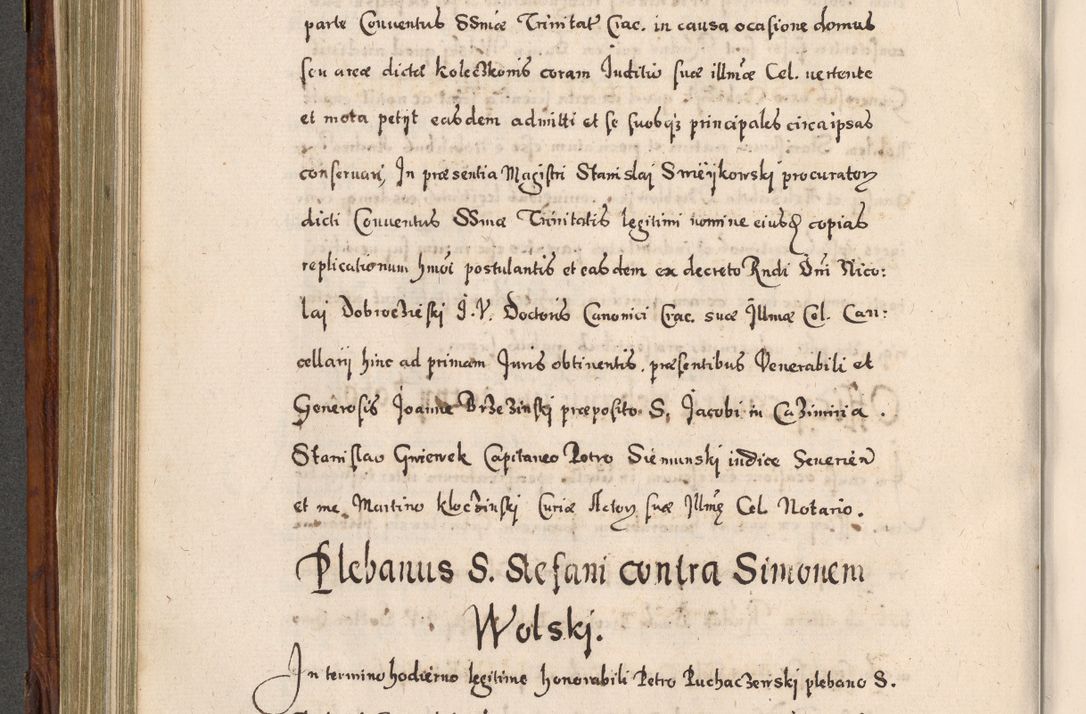 parte Conventus SSmæ Trinitat Crac. in causa ocasione domus
seu areæ dictæ koleczkonis coram Juditio suæ illmæ Cel. vertente
et mota petijt easdem admitti et se suosqz principales circa ipsas
conservari, In præsentia Magistri Stanislai Smeijkowski procurator
dicti Conventus SSmæ Trinitatis legitimi nomine eiusd copias
replicationum hmoi postulantis et easdem ex decreto Rndi Dni Nico:
lai Dobrocieski J. V. Doctoris Canonici Crac. suæ Illmæ Cel. Can:
cellarij hinc ad primam Juris obtinentis. præsentibus Venerabili et
Generosis Joanne Brzezinski præposito S. Jacobi in Cazimiria.
Stanislao Gniewek Capitaneo Petro Siemunski iudice Severien
et me Martino kloczinski Curiæ Actor suæ Illmę Cel. Notario.
Plebanus S. Stefani contra Simonem
Wolski.
In termino hodierno legitime honorabili Petro Puchaczewski plebano S.